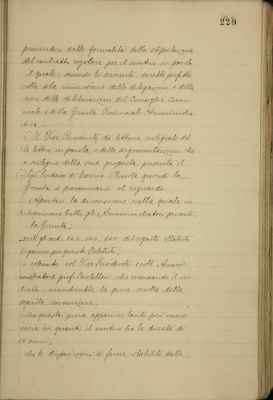 229
prescindere dalle formalità della stipulazione
del contratto regolare per il mutuo in parola
il quale, secondo lo scrivente, sarebbe perfetto
colla sola rimessione delle delegazioni e della
copia delle deliberazioni del Consiglio Comu-
nale e della Giunta Provinciale Amministra-
tiva.
Il Vice Presidente dà lettura integrale del-
la lettera in parola, e delle argomentazioni che
a sostegno della sua proposta, presenta il
Sig. Sindaco di
Giunta a pronunciarsi al riguardo.
Apertasi la discussione nella quale in-
terloquiscono tutti gli Amministratori presenti,
La Giunta;
visti gli art. del vigente Statuto
organico per questo Istituto;
ritenuto col Vice Presidente e coll'Ammi-
nistratore prof. Castellari che mancando il con-
tratto, mancherebbe la prova scritta della
seguita convenzione;
che questa prova apparisce tanto più neces-
saria in quanto il mutuo ha la durata di
anni;
che le disposizioni di favore, stabilite dalle